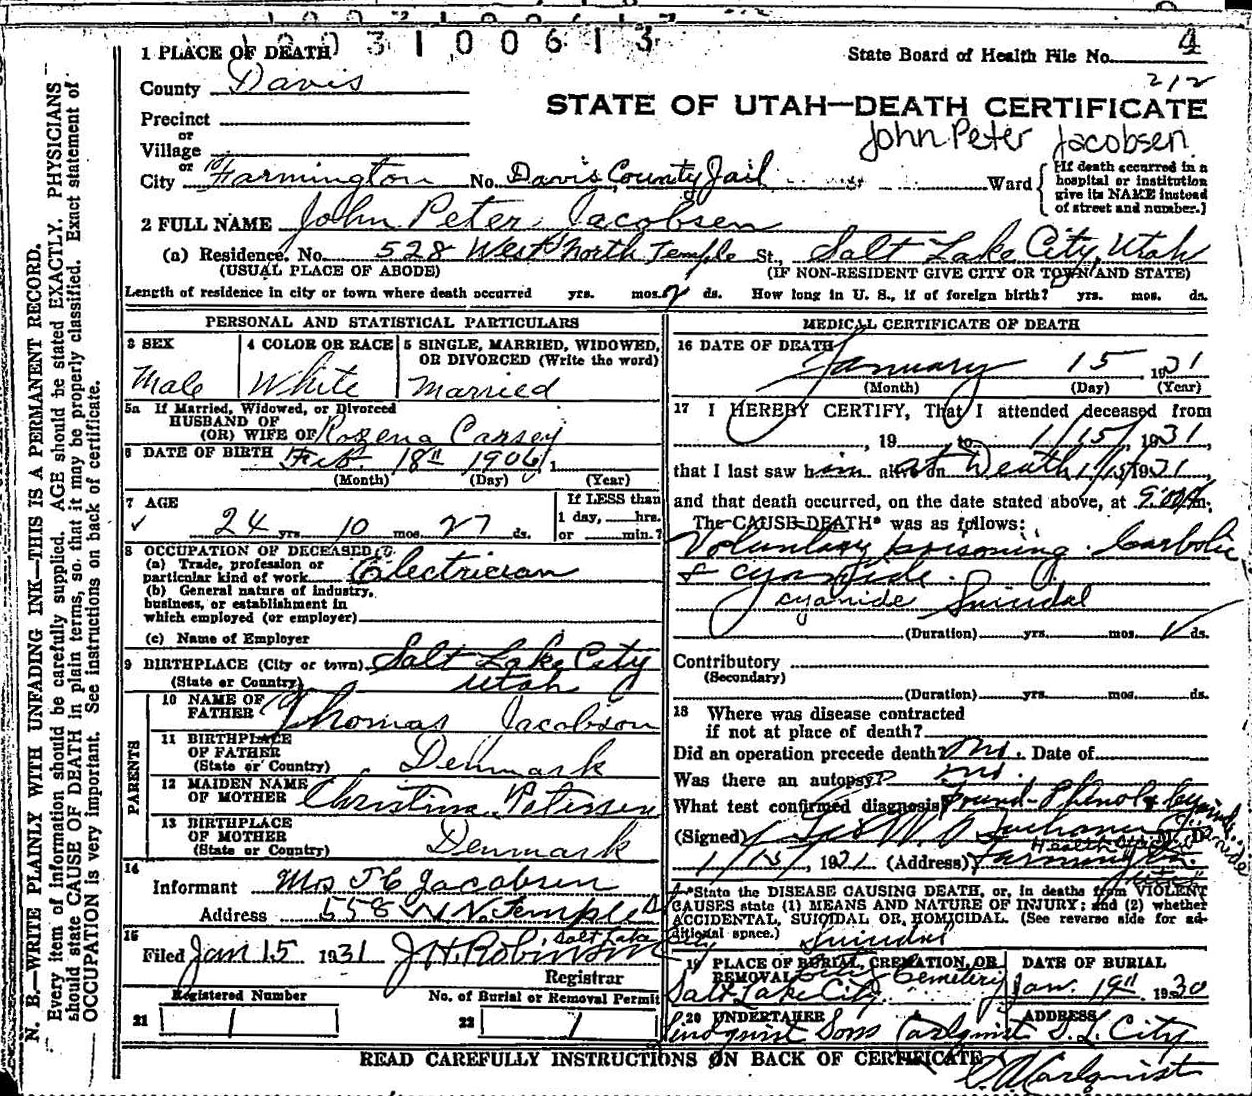 1003100613
1 PLACE OF DEATH
State Board of Health File No. 4
212
County Davis
STATE OF UTAH—DEATH CERTIFICATE
Precinct
or
Village
John Peter Jacobsen
or
City Farmington No. Davis County Jail St Ward
(If death occurred in a hospital or institution give its NAME instead of street and number.)
2 FULL NAME John Peter Jacobsen
(a) Residence. No. 528 West North Temple St., Salt Lake City, Utah
(USUAL PLACE OF ABODE) (IF NON-RESIDENT GIVE CITY OR TOWN AND STATE)
Length of residence in city or town where death occurred yrs. mos. 2 ds. How long in U. S., if of foreign birth? yrs. mos. ds.
PERSONAL AND STATISTICAL PARTICULARS
3 SEX
Male
4 COLOR OR RACE
White
5 SINGLE, MARRIED, WIDOWED,
OR DIVORCED (Write the word)
Married
5a If Married, Widowed, or Divorced
HUSBAND OF
(OR) WIFE OF Rozena Carsey
6 DATE OF BIRTH Feb. 18" 1906 1
(Month) (Day) (Year)
7 AGE
24 yrs. 10 mos. 27 ds.
If LESS than
1 day, hrs.
or min.?
8 OCCUPATION OF DECEASED
(a) Trade, profession or
particular kind of work Electrician
(b) General nature of industry,
business, or establishment in
which employed (or employer)
(c) Name of Employer
9 BIRTHPLACE (City or town) Salt Lake City
(State or Country) Utah
PARENTS
10 NAME OF
FATHER Thomas Jacobson
11 BIRTHPLACE
OF FATHER
(State or Country) Denmark
12 MAIDEN NAME
OF MOTHER Christina Petersen
13 BIRTHPLACE
OF MOTHER
(State or Country) Denmark
14
Informant Mrs J C Jacobsen
Address 558 W N. Temple St
Salt Lake City
15
Filed Jan 15 1931 J H Robinson
Registrar
Registered Number
21
No. of Burial or Removal Permit
22
MEDICAL CERTIFICATE OF DEATH
16 DATE OF DEATH
January 15 1931
(Month) (Day) (Year)
17 I HEREBY CERTIFY, That I attended deceased from
, 19 to 1/15/ 1931,
that I last saw him alive on at Death 1/15/1931
and that death occurred, on the date stated above, at m.
The CAUSE DEATH* was as follows:
Voluntary poisoning. Carbolic
& cyanide.
cyanide Suicidal
(Duration) yrs. mos. ds.
Contributory
(Secondary)
(Duration) yrs. mos. ds.
18 Where was disease contracted
if not at place of death?
Did an operation precede death? no. Date of
Was there an autopsy? no.
What test confirmed diagnosis? Found Phenol & Cyanide
Cyanide
(Signed) M. D.
Health Officer
1/15/, 1931 (Address) Farmington
Utah
*State the DISEASE CAUSING DEATH, or, in deaths from VIOLENT
CAUSES state (1) MEANS AND NATURE OF INJURY; and (2) whether
ACCIDENTAL, SUICIDAL OR, HOMICIDAL. (See reverse side for ad-
ditional space.) Suicidal
19 PLACE OF BURIAL, CREMATION, OR
REMOVAL City Cemetery
Salt Lake City
DATE OF BURIAL
Jan. 19" 1930
20 UNDERTAKER
Lindquist Sons Carlquist
ADDRESS
S. L. City
READ CAREFULLY INSTRUCTIONS ON BACK OF CERTIFICATE
Carlquist
N. B.—WRITE PLAINLY WITH UNFADING INK—THIS IS A PERMANENT RECORD.
Every item of information should be carefully supplied. AGE should be stated EXACTLY. PHYSICIANS
should state CAUSE OF DEATH in plain terms, so that it may be properly classified. Exact statement of
OCCUPATION is very important. See instructions on back of certificate.